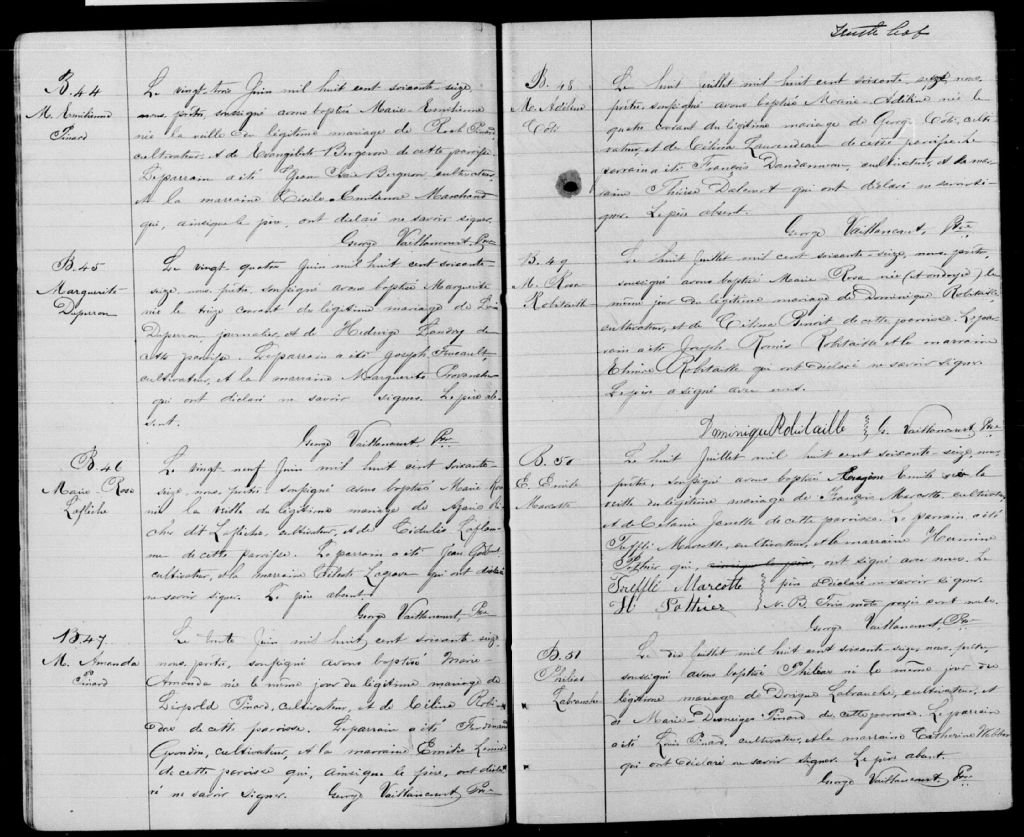 B. 44
M. Emilienne
Pinard
Le vingt-trois Juin mil huit cent soixante-seize
nous, prêtre, soussigné avons baptisé Marie-Emilienne
née la veille du légitime mariage de Pinard,
cultivateur, et de Evangeliste Bergeron de cette paroisse.
Le parrain a été Jean Bergeron, cultivateur,
et la marraine Emilienne Marchand
qui, ainsi que le père, ont déclaré ne savoir signer.
George Vaillancourt, Ptre
B. 45
Marguerite
Duperron
Le vingt-quatre Juin mil huit cent soixante-
seize, nous, prêtre, soussigné avons baptisé Marguerite
née le treize courant du légitime mariage de
Duperron, journalier, et de Hedwige Landry de
cette paroisse. Le parrain a été Joseph Foucault,
cultivateur, et la marraine Marguerite Provencher
qui ont déclaré ne savoir signer. Le père ab-
sent.
George Vaillancourt Ptre
B. 46
Marie-Rose
Laflèche
Le vingt-neuf Juin mil huit cent soixante-
seize, nous, prêtre, soussigné avons baptisé Marie Rose
née la veille du légitime mariage de
cher dit Laflèche, cultivateur, et de Laflam-
me de cette paroisse. Le parrain a été Jean
cultivateur, et la marraine qui ont déclaré
ne savoir signer. Le père absent.
George Vaillancourt, Ptre
B. 47
M. Amanda
Pinard
Le trente Juin mil huit cent soixante-seize,
nous, prêtre, soussigné avons baptisé Marie-
Amanda née le même jour du légitime mariage de
Léopold Pinard, cultivateur, et de Céline Robi-
de cette paroisse. Le parrain a été Ferdinand
cultivateur, et la marraine Emilie
de cette paroisse qui, ainsi que le père, ont décla-
ré ne savoir signer. George Vaillancourt, Ptre
B. 48
M. Adéline
Coté
Le huit Juillet mil huit cent soixante-seize, nous,
prêtre, soussigné avons baptisé Marie-Adéline née le
quatre courant du légitime mariage de George Coté, culti-
vateur, et de Célina Laurendeau de cette paroisse. Le
parrain a été François Dandonneau, cultivateur, et la mar-
raine Thérèse qui ont déclaré ne savoir si-
gner. Le père absent.
George Vaillancourt, Ptre
B. 49
M. Rosa
Robitaille
Le huit Juillet mil huit cent soixante-seize, nous, prêtre,
soussigné avons baptisé Marie Rosa née (et ondoyée) le
même jour du légitime mariage de Dominique Robitaille,
cultivateur, et de Célina Benoit de cette paroisse. Le par-
rain a été Joseph Rémis Robitaille et la marraine
Robitaille qui ont déclaré ne savoir signer.
Le père a signé avec nous.
Dominique Robitaille G. Vaillancourt, Ptre
B. 50
E. Emile
Marcotte
Le huit Juillet mil huit cent soixante-seize, nous,
prêtre, soussigné avons baptisé Emile né la
veille du légitime mariage de François Marcotte, cultivateur,
et de de cette paroisse. Le parrain a été
Trefflé Marcotte, cultivateur, et la marraine Hermine
Pothier qui, ainsi que le père, ont signé avec nous. Le
Treffle Marcotte père a déclaré ne savoir signer.
H Pothier N. B. Trois mots rayés sont nuls.
George Vaillancourt, Ptre
B. 51
Philéas
Labranche
Le dix Juillet mil huit cent soixante-seize, nous, prêtre,
soussigné avons baptisé Philéas né le même jour du
légitime mariage de Labranche, cultivateur, et
de Marie-Desneiges Pinard de cette paroisse. Le parrain
a été Louis Pinard, cultivateur, et la marraine Catherine
qui ont déclaré ne savoir signer. Le père absent.
George Vaillancourt, Ptre